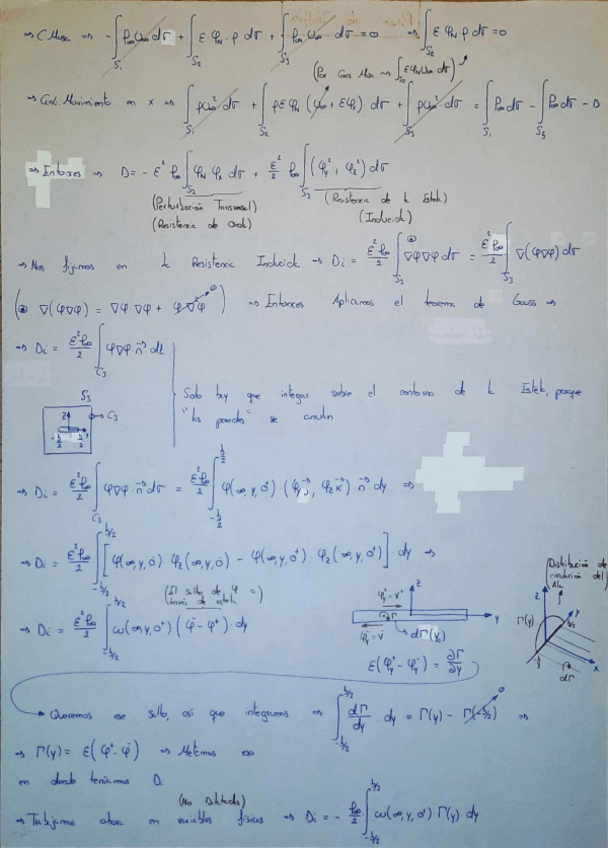 ⇒ C. Masa ⇒ -∫_{S1} ρ∞ u∞ dσ + ∫_{S2} ε φ_N · ρ dσ + ∫_{S3} ρ∞ u∞ dσ = 0 ⇒ ∫_{S2} ε φ_N ρ dσ = 0
(Por Cons Masa ⇒ ∫_{S2} ε φ_N u∞ dσ)
⇒ Cant. Movimiento en x ⇒ ∫_{S1} ρu∞² dσ + ∫_{S2} ρ ε φ_N (u∞ + ε φ_x) dσ + ∫_{S3} ρu∞² dσ = ∫_{S1} P∞ dσ - ∫_{S3} P∞ dσ - D
⇒ Entonces ⇒ D = - ε² ρ∞ ∫_{S2} φ_N φ_x dσ + ε²/2 ρ∞ ∫_{S3} (φ_y² + φ_z²) dσ
(Perturbación Transversal) (Resistencia de la Estela)
(Resistencia de Onda) (Inducida)
→ Nos fijamos en la Resistencia Inducida → Di = ε²ρ∞/2 ∫_{S3} ∇φ∇φ dσ = ε²ρ∞/2 ∫_{S3} ∇(φ∇φ) dσ
(∇(φ∇φ) = ∇φ ∇φ + φ∇²φ → 0) ⇒ Entonces Aplicamos el teorema de Gauss ⇒
⇒ Di = ε²ρ∞/2 ∫_{C3} φ∇φ n⃗ · dl
Solo hay que integrar sobre el contorno de la Estela, porque
"las paredes" se anulan
S3
C3
z
y
-b/2 b/2
⇒ Di = ε²ρ∞/2 ∫_{C3} φ∇φ · n⃗ dσ = ε²ρ∞/2 ∫_{-b/2}^{b/2} φ(∞, y, 0) · (φ_y j⃗, φ_z k⃗) · n⃗ dy ⇒
⇒ Di = ε²ρ∞/2 ∫_{-b/2}^{b/2} [φ(∞, y, 0⁻) φ_z(∞, y, 0⁻) - φ(∞, y, 0⁺) · φ_z(∞, y, 0⁺)] · dy ⇒
(El salto de φ a
través de estela)
⇒ Di = ε²ρ∞/2 ∫_{-b/2}^{b/2} ω(∞, y, 0⁺) (φ⁻ - φ⁺) · dy
φ_y⁺ = v⁺
φ_y⁻ = v⁻
z
y
dΓ
dΓ(y)
ε(φ_y⁺ - φ_y⁻) = ∂Γ/∂y
Distribución de
circulación del
Ala
Γ(y)
z
y
x
b/2
dΓ
→ Queremos ese salto, así que integramos ⇒ ∫_{-b/2}^{b/2} dΓ/dy · dy = Γ(y) - Γ(-b/2) → 0 ⇒
⇒ Γ(y) = ε(φ⁺ - φ⁻) ⇒ Metemos eso
en donde teníamos Di
(No Dilatadas)
⇒ Trabajamos ahora en variables físicas ⇒ Di = - ρ∞/2 ∫_{-b/2}^{b/2} ω(∞, y, 0⁺) Γ(y) dy